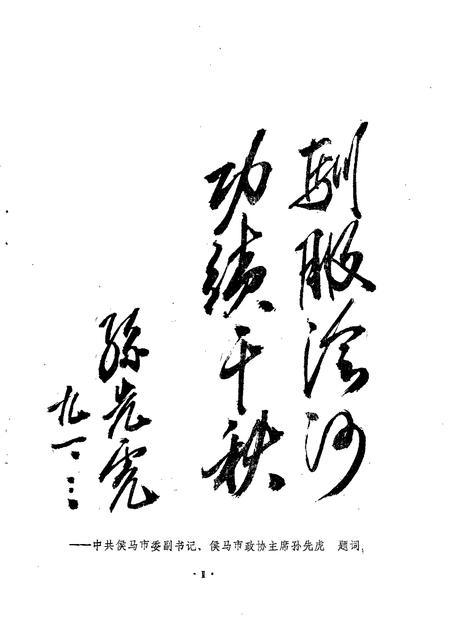 驯服浍河
功绩千秋
孙先虎
九一.三.
——中共侯马市委副书记、侯马市政协主席孙先虎 题词
·1·